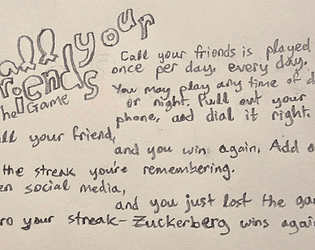 Call your
friends
The Game
Call your friends is played
once per day, every day.
You may play any time of d
or night. Pull out your
phone, and dial it right.
all your friend,
and you win again. Add o
the streak you're remembering.
en social media,
and you just lost the ga
ro your streak- Zuckerberg wins again